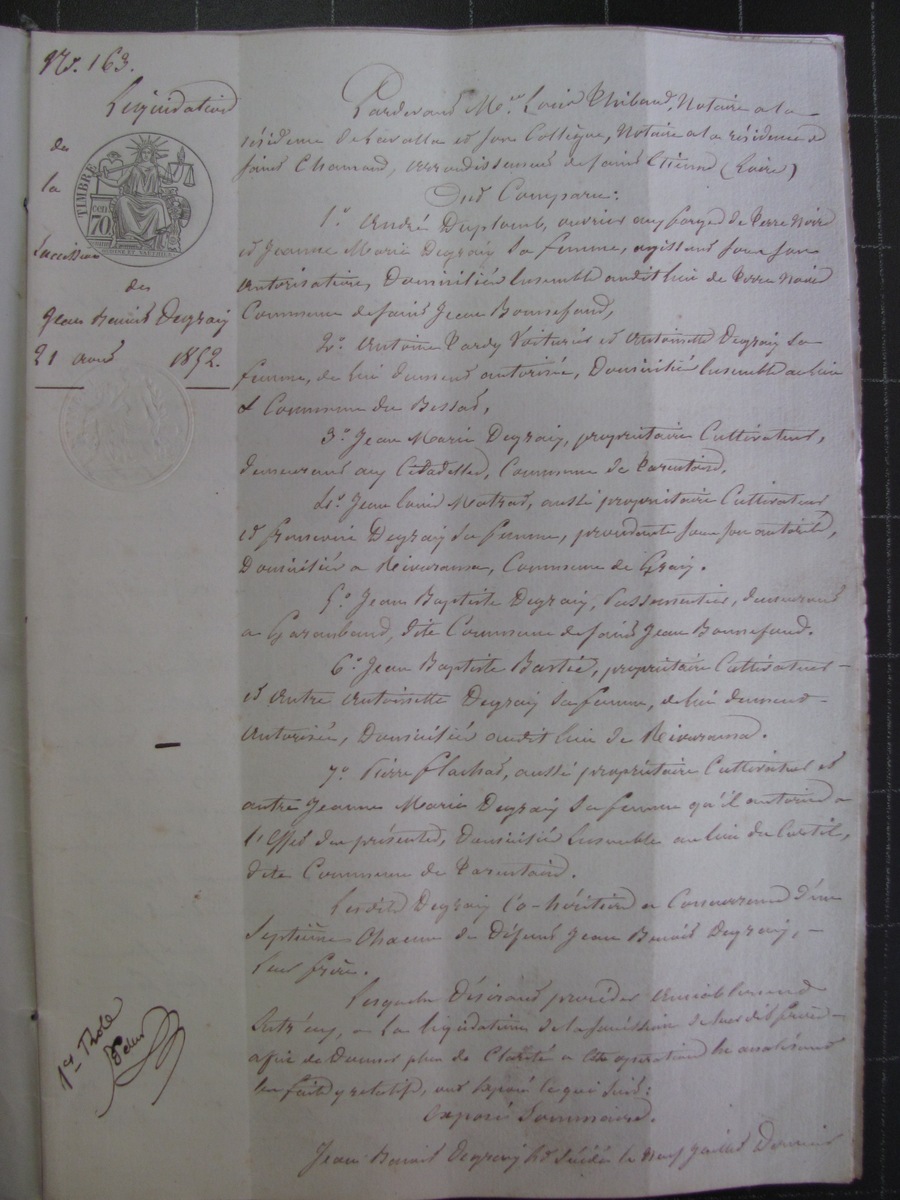 No. 163.
Liquidation
de
la
TIMBRE
70
Succession
de
Jean Benoit Degraix
21 août 1852.
Pardevant Me. Louis Thibaud, Notaire a la
résidence de Lavalla et son Collègue, Notaire a la résidence de
Saint Chamond, arrondissement de Saint Etienne (Loire)
Ont Comparu:
1o. André Duplomb, ouvrier aux forges de Terre Noire
et Jeanne Marie Degraix sa femme, agissant sous son
autorisation, Domiciliés Ensemble audit lieu de Terre Noire
Commune de Saint Jean Bonnefond,
2o. Antoine Tardy Voiturier et Antoinette Degraix sa
femme, de lui dument autorisée, Domiciliés Ensemble au lieu
& Commune du Bessat,
3o. Jean Marie Degraix, propriétaire Cultivateur,
demeurant aux Citadelles, Commune de Tarentaise,
4o. Jean Louis Matrat, aussi propriétaire Cultivateur
et Degraix sa femme, procédante sous son autorité,
Domiciliés a Commune de Graix.
5o. Jean Baptiste Degraix, Passementier, demeurant
a dite Commune de Saint Jean Bonnefond.
6o. Jean Baptiste propriétaire Cultivateur
et autre Antoinette Degraix sa femme, de lui dument
autorisée, Domiciliés audit lieu de
7o. Pierre Flachat, aussi propriétaire Cultivateur et
autre Jeanne Marie Degraix sa femme qu'il autorise a
l'effet des présentes, Domiciliés Ensemble au lieu du
dite Commune de Tarentaise.
Lesdits Degraix Co-héritiers a Concurrence d'un
Septième Chacun de Défunt Jean Benoit Degraix,
leur frère.
Lesquels Désirant procéder amiablement
Entr'eux, a la liquidation de la succession de leur dit frère
afin de Donner plus de Clarté a cette opération
les faits y relatifs, ont Exposé Ce qui Suit:
Exposé Sommaire.
Jean Benoit Degraix Est Décédé le neuf Juillet Dernier
1er Rôle